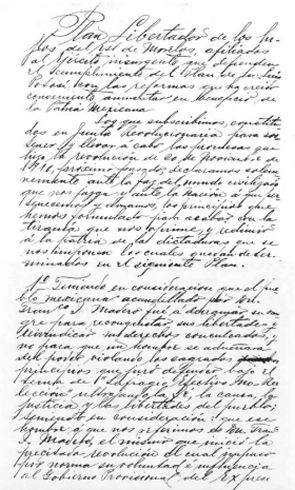 Plan Libertador de los hi-
jos del Est de Morelos, afiliados
al Ejército insurgente que defienden
el cumplimiento del Plan de Sn. Luis
Potosí con las reformas que ha creido
conveniente aumentar en beneficio de
la Patria Mexicana
Los que subscribimos, constitui-
dos en Junta Revolucionaria para sos-
tener y llevar á cabo las promesas que
hizo la revolución de 20 de Noviembre de
1910, proximo pasado, declaramos solem-
nemente ante la faz del mundo civilizado
que nos juzga y ante la Nación á que per-
tenecemos y amamos, los principios que
hemos formulado para acabar con la
tiranía que nos oprime y redimir
á la patria de las dictaduras que se
nos imponen los cuales quedan deter-
minados en el siguiente Plan.
1º. Teniendo en consideracion que el pue-
blo mexicano acaudillado por Dn.
Franco. I. Madero fué á derramar su san-
gre para reconquistar sus libertades y
reivindicar sus derechos conculcados, y
no para que un hombre se adueñara
del poder violando los sagrados
principios que juró defender bajo el
lema de "Sufragio Efectivo No Ree-
lección" ultrajando la fé, la causa, la
justicia y las libertades del pueblo;
teniendo en consideración: que ese
hombre á que nos referimos es Dn. Franco
I. Madero, el mismo que inició la
precitada revolución el cual impuso
por norma su voluntad é influencia
al Gobierno Provisional del Ex presi